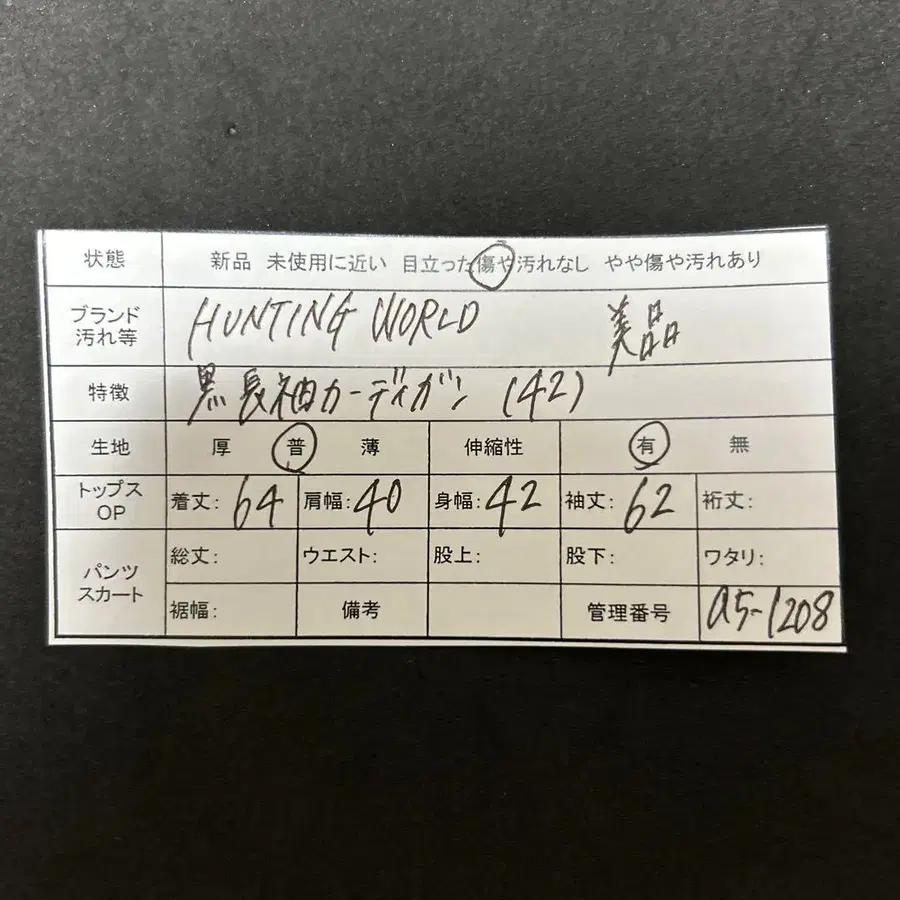 状態 新品 未使用に近い 目立った傷や汚れなし やや傷や汚れあり
ブランド
汚れ等 HUNTING WORLD 美品
特徴 黒長袖カーディガン (42)
生地 厚 普 薄 伸縮性 有 無
トップス
OP 着丈: 64 肩幅: 40 身幅: 42 袖丈: 62 裄丈:
パンツ
スカート 総丈: ウエスト: 股上: 股下: ワタリ:
裾幅: 備考 管理番号 a5-1208